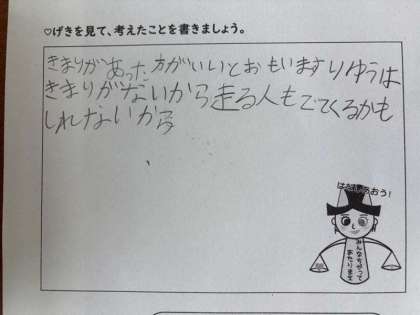 ♡げきを見て、考えたことを書きましょう。
きまりがあった方がいいとおもいますりゆうは
きまりがないから走る人もでてくるかも
しれないから
みんなちがって
あたりまえ